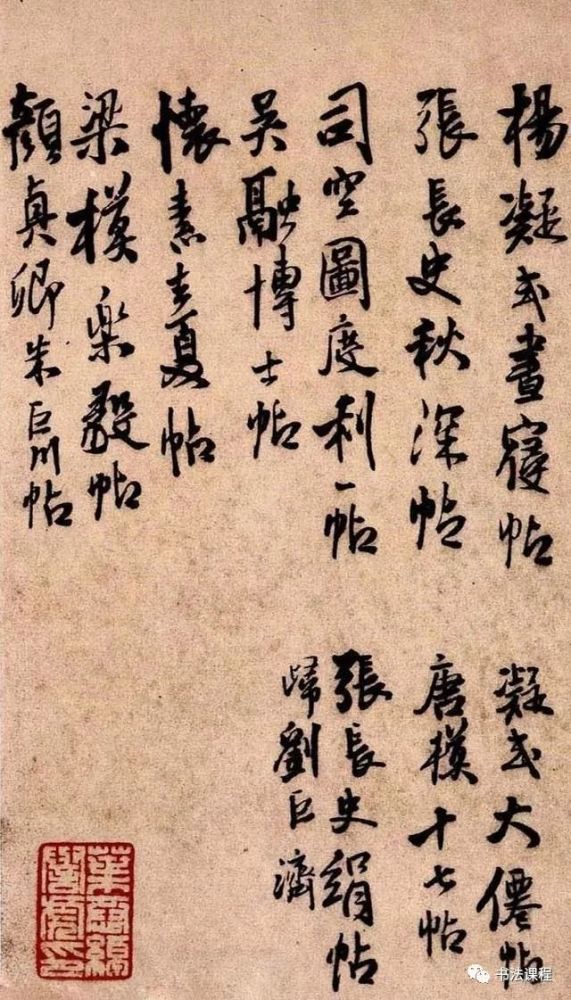 楊凝式晝寢帖
凝式大僊帖
張長史秋深帖
唐模十七帖
司空圖度利一帖
張長史絹帖
歸劉巨濟
吳融博士帖
懷素夏帖
梁模樂毅帖
顏真卿朱巨川帖
葉恭綽
譽虎印
书法课程